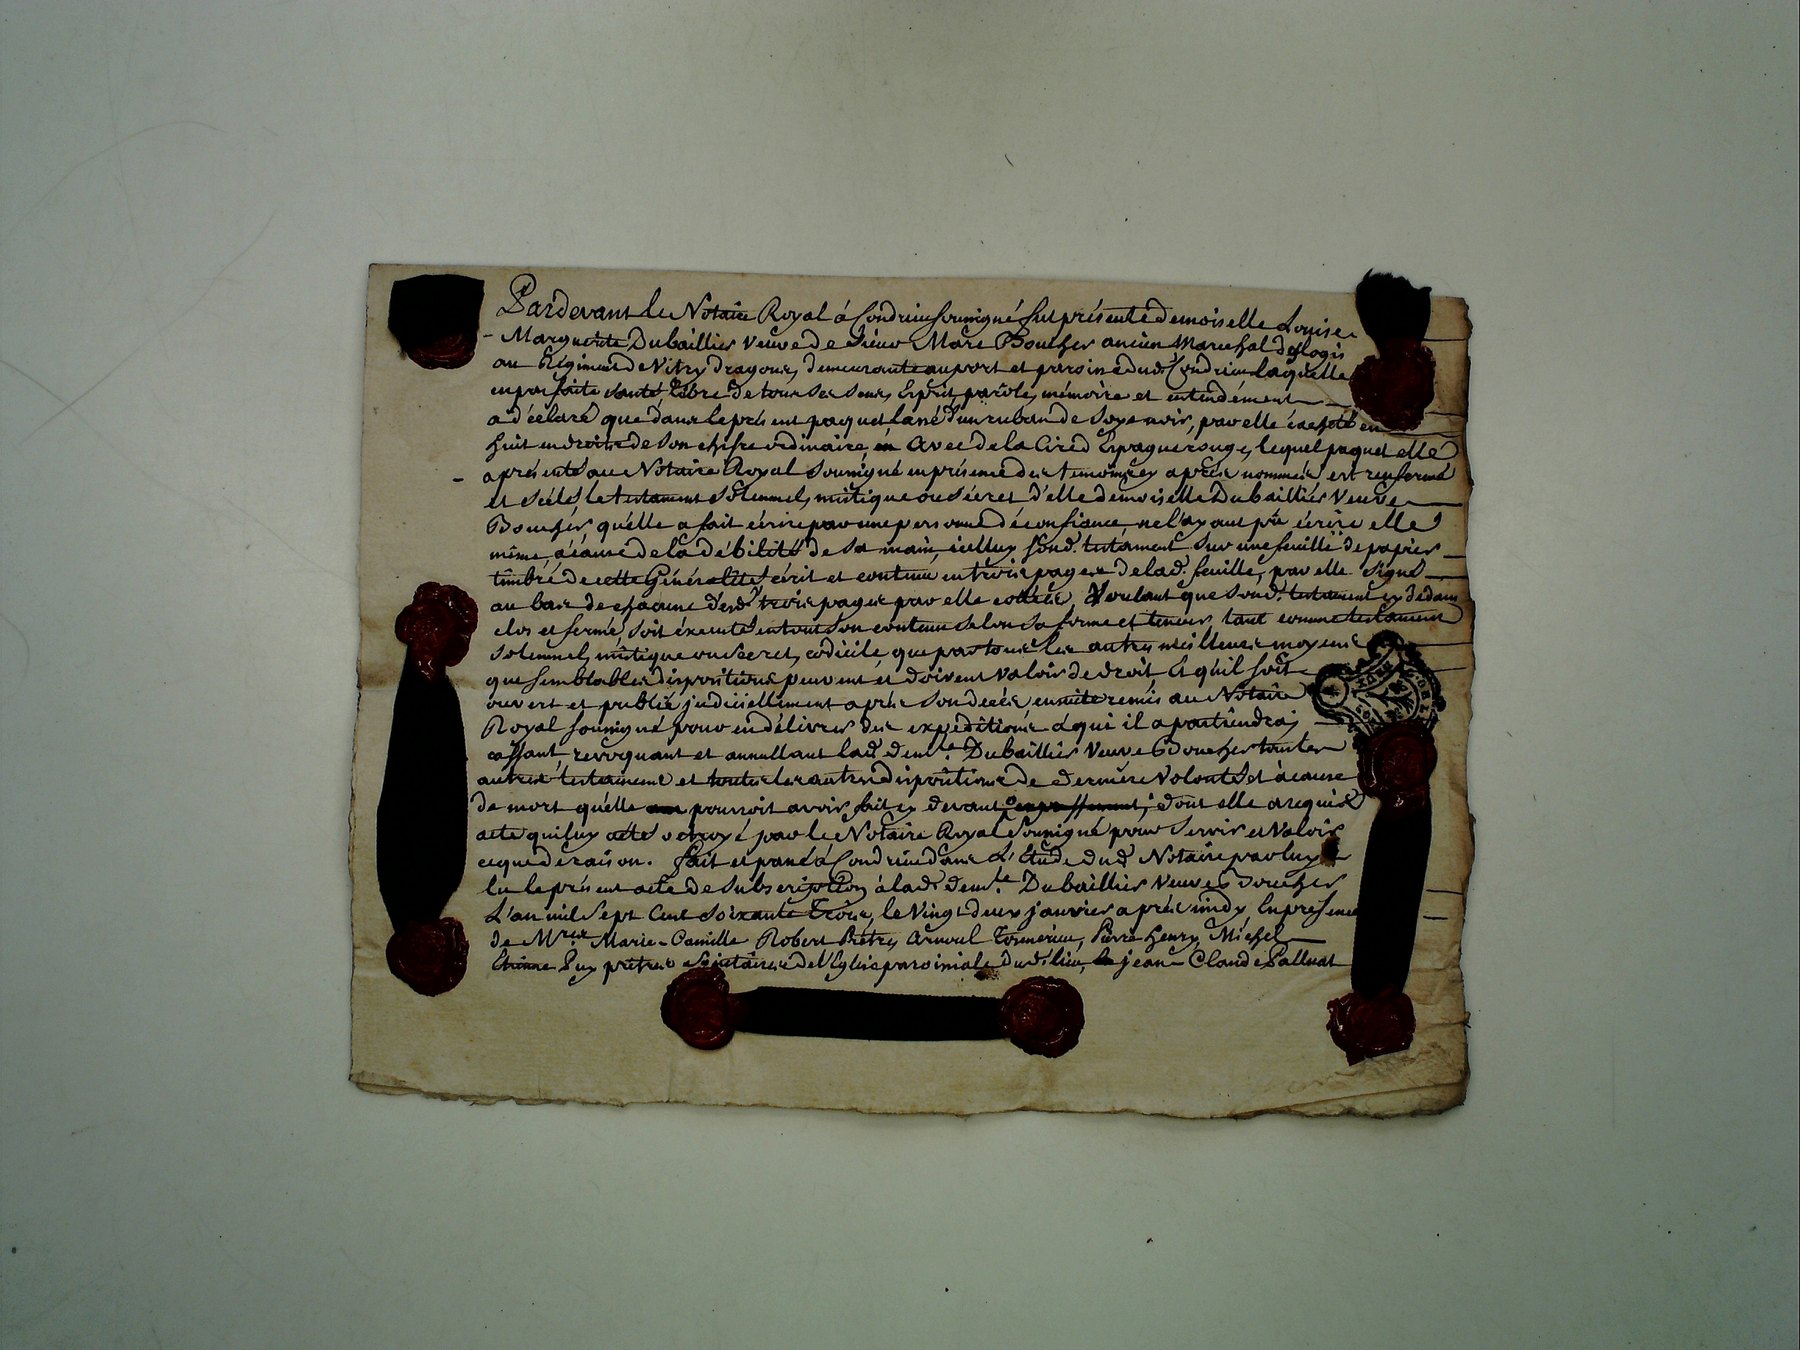 Pardevant le Notaire Royal á Condrieu soussigné fut présente demoiselle Louise
Marguerite Duballier veuve de sieur Marc Boucher ancien Marechal deslogis
au Régiment de Vitry dragons, demeurante au port et paroisse dud. Condrieu laquelle
en parfaite santé, libre de tous ses sens, Esprit, parole, mémoire et entendément
a déclaré que dans le présent paquet lassé d'un ruban de soye noir, par elle cacheté en
huit endroits de son chifre ordinaire, avec de la Cire d'Espagne rouge, lequel paquet elle
a présenté au Notaire Royal soussigné en présence des temoins cy aprés nommés, est renfermé
et scélé le testament solemnel, mistique ou sécret d'elle demoiselle Duballier Veuve
Boucher, qu'elle a fait écrire par une personne dé confiance, ne l'ayant pû écrire elle
même, á cause de la débilité de sa main, icelluy sond. testament sur une feuille de papier
timbré de cette Généralité, écrit et contenu en trois pages de lad. feuille, par elle signé
au bas de chacune desd. trois pages par elle cottées, Voulant que sond. testament cy dedans
clos et fermé, soit éxecuté en tout son contenu selon sa forme et teneur, tant comme testament
solemnel, mistique ou sécret, codicile, que par tous les autres meilleurs moyens
que semblables dispositions peuvent et doivent valoir de droit, Et qu'il soit
ouvert et publié judiciellement aprés son decés, ensuite remis au Notaire
Royal soussigné pour en délivrer des expeditions á qui il apartiendra,
cassant, revoquant et annullant lad. dem.lle Duballier Veuve Boucher tous les
autres testaments et toutes les autres dispositions de derniere volonté et á cause
de mort qu'elle pourroit avoir fait cy devant, dont elle a requis
acte qui luy a été octroyé par le Notaire Royal soussigné pour servir et valoir
ce que de raison. fait et passé á Condrieu dans L'Etude dud. Notaire par luy
lu le présent acte de subscription á lad. dem.lle Duballier Veuve Boucher
L'an mil sept Cent soixante trois, le vingt deux janvier aprés midy, En presence
de M.rs Marie-Camille Robert Prêtre, Arnoul, Pierre henry, Michel
Etienne Puy prêtres sociétaires de l'Eglise paroissiale dud. lieu, jean-Claude Palluat